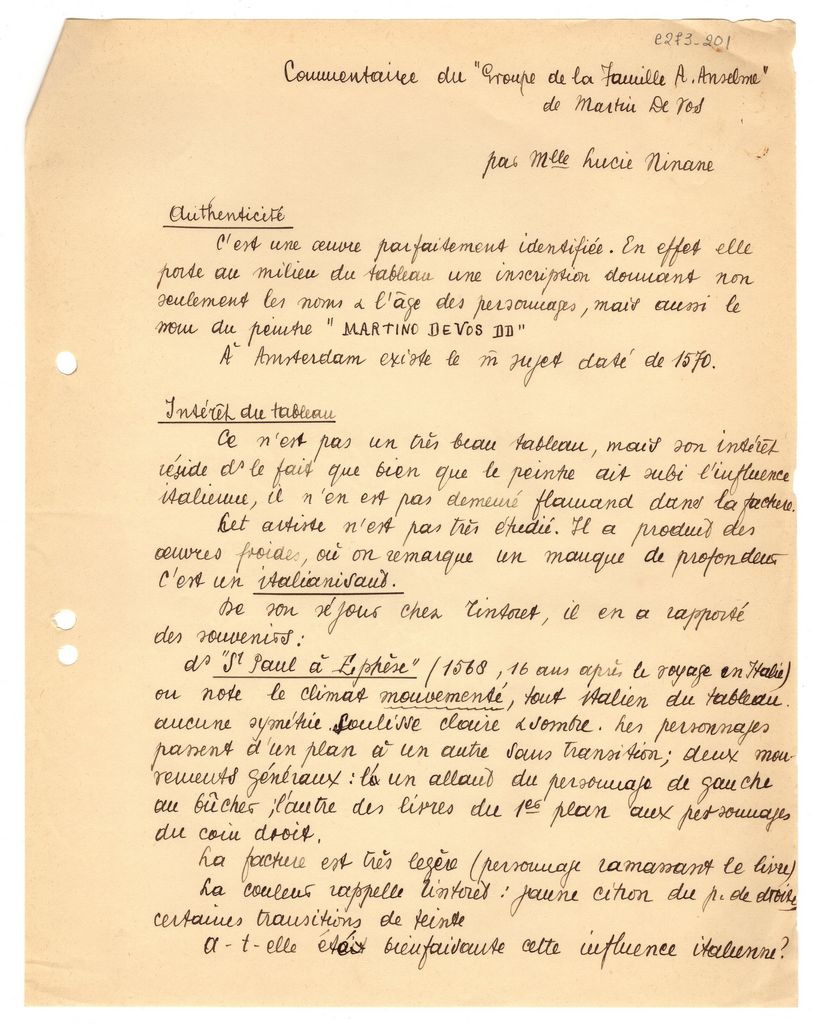 e273-201
Commentaire du "Groupe de la Famille A. Anselme"
de Martin De Vos
par Mlle Lucie Ninane
Authenticité
C'est une œuvre parfaitement identifiée. En effet elle
porte au milieu du tableau une inscription donnant non
seulement les noms & l'âge des personnages, mais aussi le
nom du peintre "MARTINO DE VOS DD"
À Amsterdam existe le m̄ sujet daté de 1570.
Intérêt du tableau
Ce n'est pas un très beau tableau, mais son intérêt
réside ds le fait que bien que le peintre ait subi l'influence
italienne, il n'en est pas demeuré flamand dans la facture.
Cet artiste n'est pas très étudié. Il a produit des
œuvres froides, où on remarque un manque de profondeur
C'est un italianisant.
De son séjour chez Tintoret, il en a rapporté
des souvenirs:
ds "St Paul à Ephèse" (1568, 16 ans après le voyage en Italie)
on note le climat mouvementé, tout italien du tableau.
aucune symétrie. Coulisse claire & sombre. Les personnages
passent d'un plan à un autre sans transition; deux mou-
vements généraux: là un allant du personnage de gauche
au bûcher; l'autre des livres du 1er plan aux personnages
du coin droit.
La facture est très legère (personnage ramassant le livre)
La couleur rappelle Tintoret: jaune citron du p. de droite
certaines transitions de teinte
a-t-elle été bienfaisante cette influence italienne?